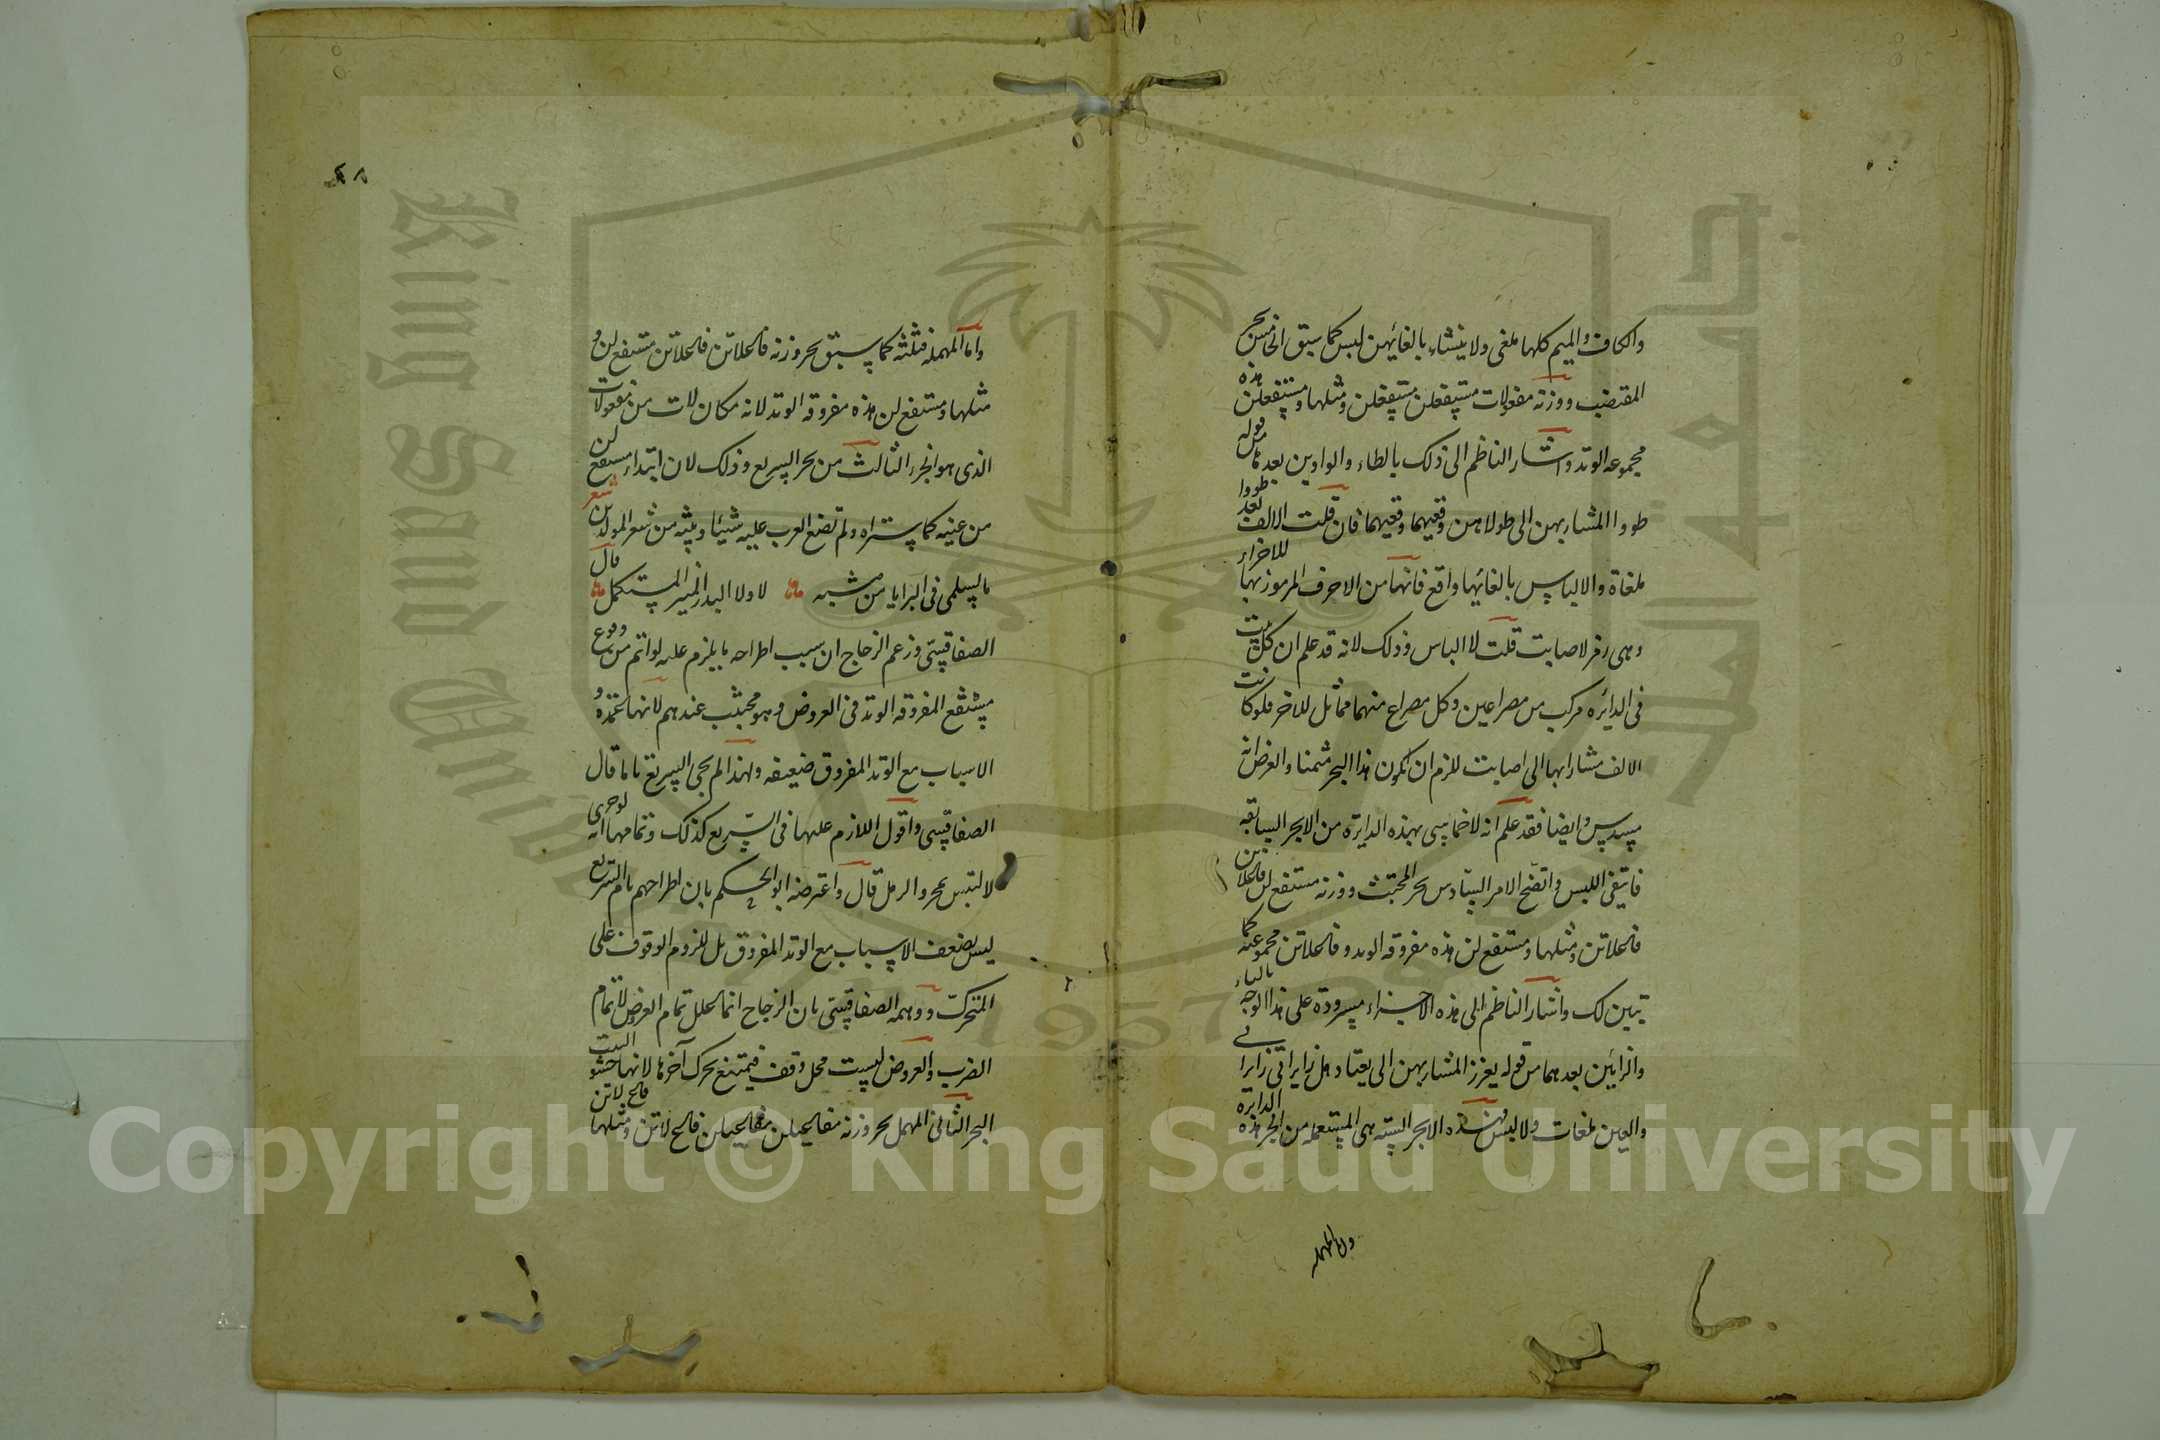 والكاف والميم كلها ملغى ولا ينشاء بالغائهن لبس كما سبق الخامس بحر
المقتضب ووزنه مفعولات مستفعلن مستفعلن ومثلها ومستفعلن هذه
مجموعه الوتد واشار الناظم الى ذلك بالطاء والواوين بعدها من قوله
طووا المشار بهن الى طولا هن وقعيهما وقعيهما فان قلت الالف بعد طووا
ملغاة والالباس بالغائها واقع فانها من الاحرف المرموز بها للاجزاء
وهى رمز لاصابت قلت لا الباس وذلك لانه قد علم ان كل بيت
فى الدائره مركب من مصراعين وكل مصراع منهما مماثل للاخر فلو كانت
الالف مشارا بها الى اصابت للزم ان يكون هذا البحر مثمنا والغرض انه
مسدس وايضا فقد علم انه لا خماسى بهذه الدايره من الابحر السابقه
فانتفى اللبس واتضح الامر السادس بحر المجتث ووزنه مستفع لن فاعلاتن
فاعلاتن ومثلها ومستفع لن هذه مفروقه الوتد وفاعلاتن مجموعته كما
تبين لك واشار الناظم الى هذه الاجزاء مسرودة على هذا الوجه بالياء
والزايين بعدهما من قوله يعزز المشار بهن الى يعتاد هل زايراتى زايراتى
والعين ملغات ولا لبس فهذه الابحر السته هى المستعمله من ابحر هذه الدايره
واما المهمله
واما المهمله فثلثه كما سبق بحر وزنه فاعلاتن فاعلاتن مستفع لن و
مثلها ومستفع لن هذه مفروقه الوتد لانه مكان لات من مفعولات
الذى هو الجزء الثالث من بحر السريع وذلك لان ابتداء مستفع لن
من عينه كما ستراه ولم تضع العرب عليه شيئا وبيته من شعر المولدين شعر
ما لسلمى فى البرايا من مشبه لا ولا البدر المنير المستكمل قال
الصفاقسى وزعم الزجاج ان سبب اطراحه ما يلزم عليه لو اتم من وقوع
مستفع المفروقه الوتد فى العروض وهو مجتنب عندهم لانها عمده و
الاسباب مع الوتد المفروق ضعيفه ولهذا لم يجى السريع تاما قال
الصفاقسى واقول اللازم عليها فى السريع كذلك وتمامها انه لو جرى
لالتبس بمجزو الرمل قال واعترضه ابو الحكم بان اطراحهم تام السريع
ليس لضعف الاسباب مع الوتد المفروق بل للزوم الوقوف على
المتحرك ووهمه الصفاقسى بان الزجاج انما علل تمام العروض لا تمام
الضرب والعروض ليست محل وقف فيمتنع تحرك آخرها لانها حشو البيت
البحر الثانى المهمل بحر وزنه مفاعيلن مفاعيلن فاع لاتن ومثلها فاع لاتن
Copyright © King Saud University
King Saud University
جامعة الملك سعود
1957